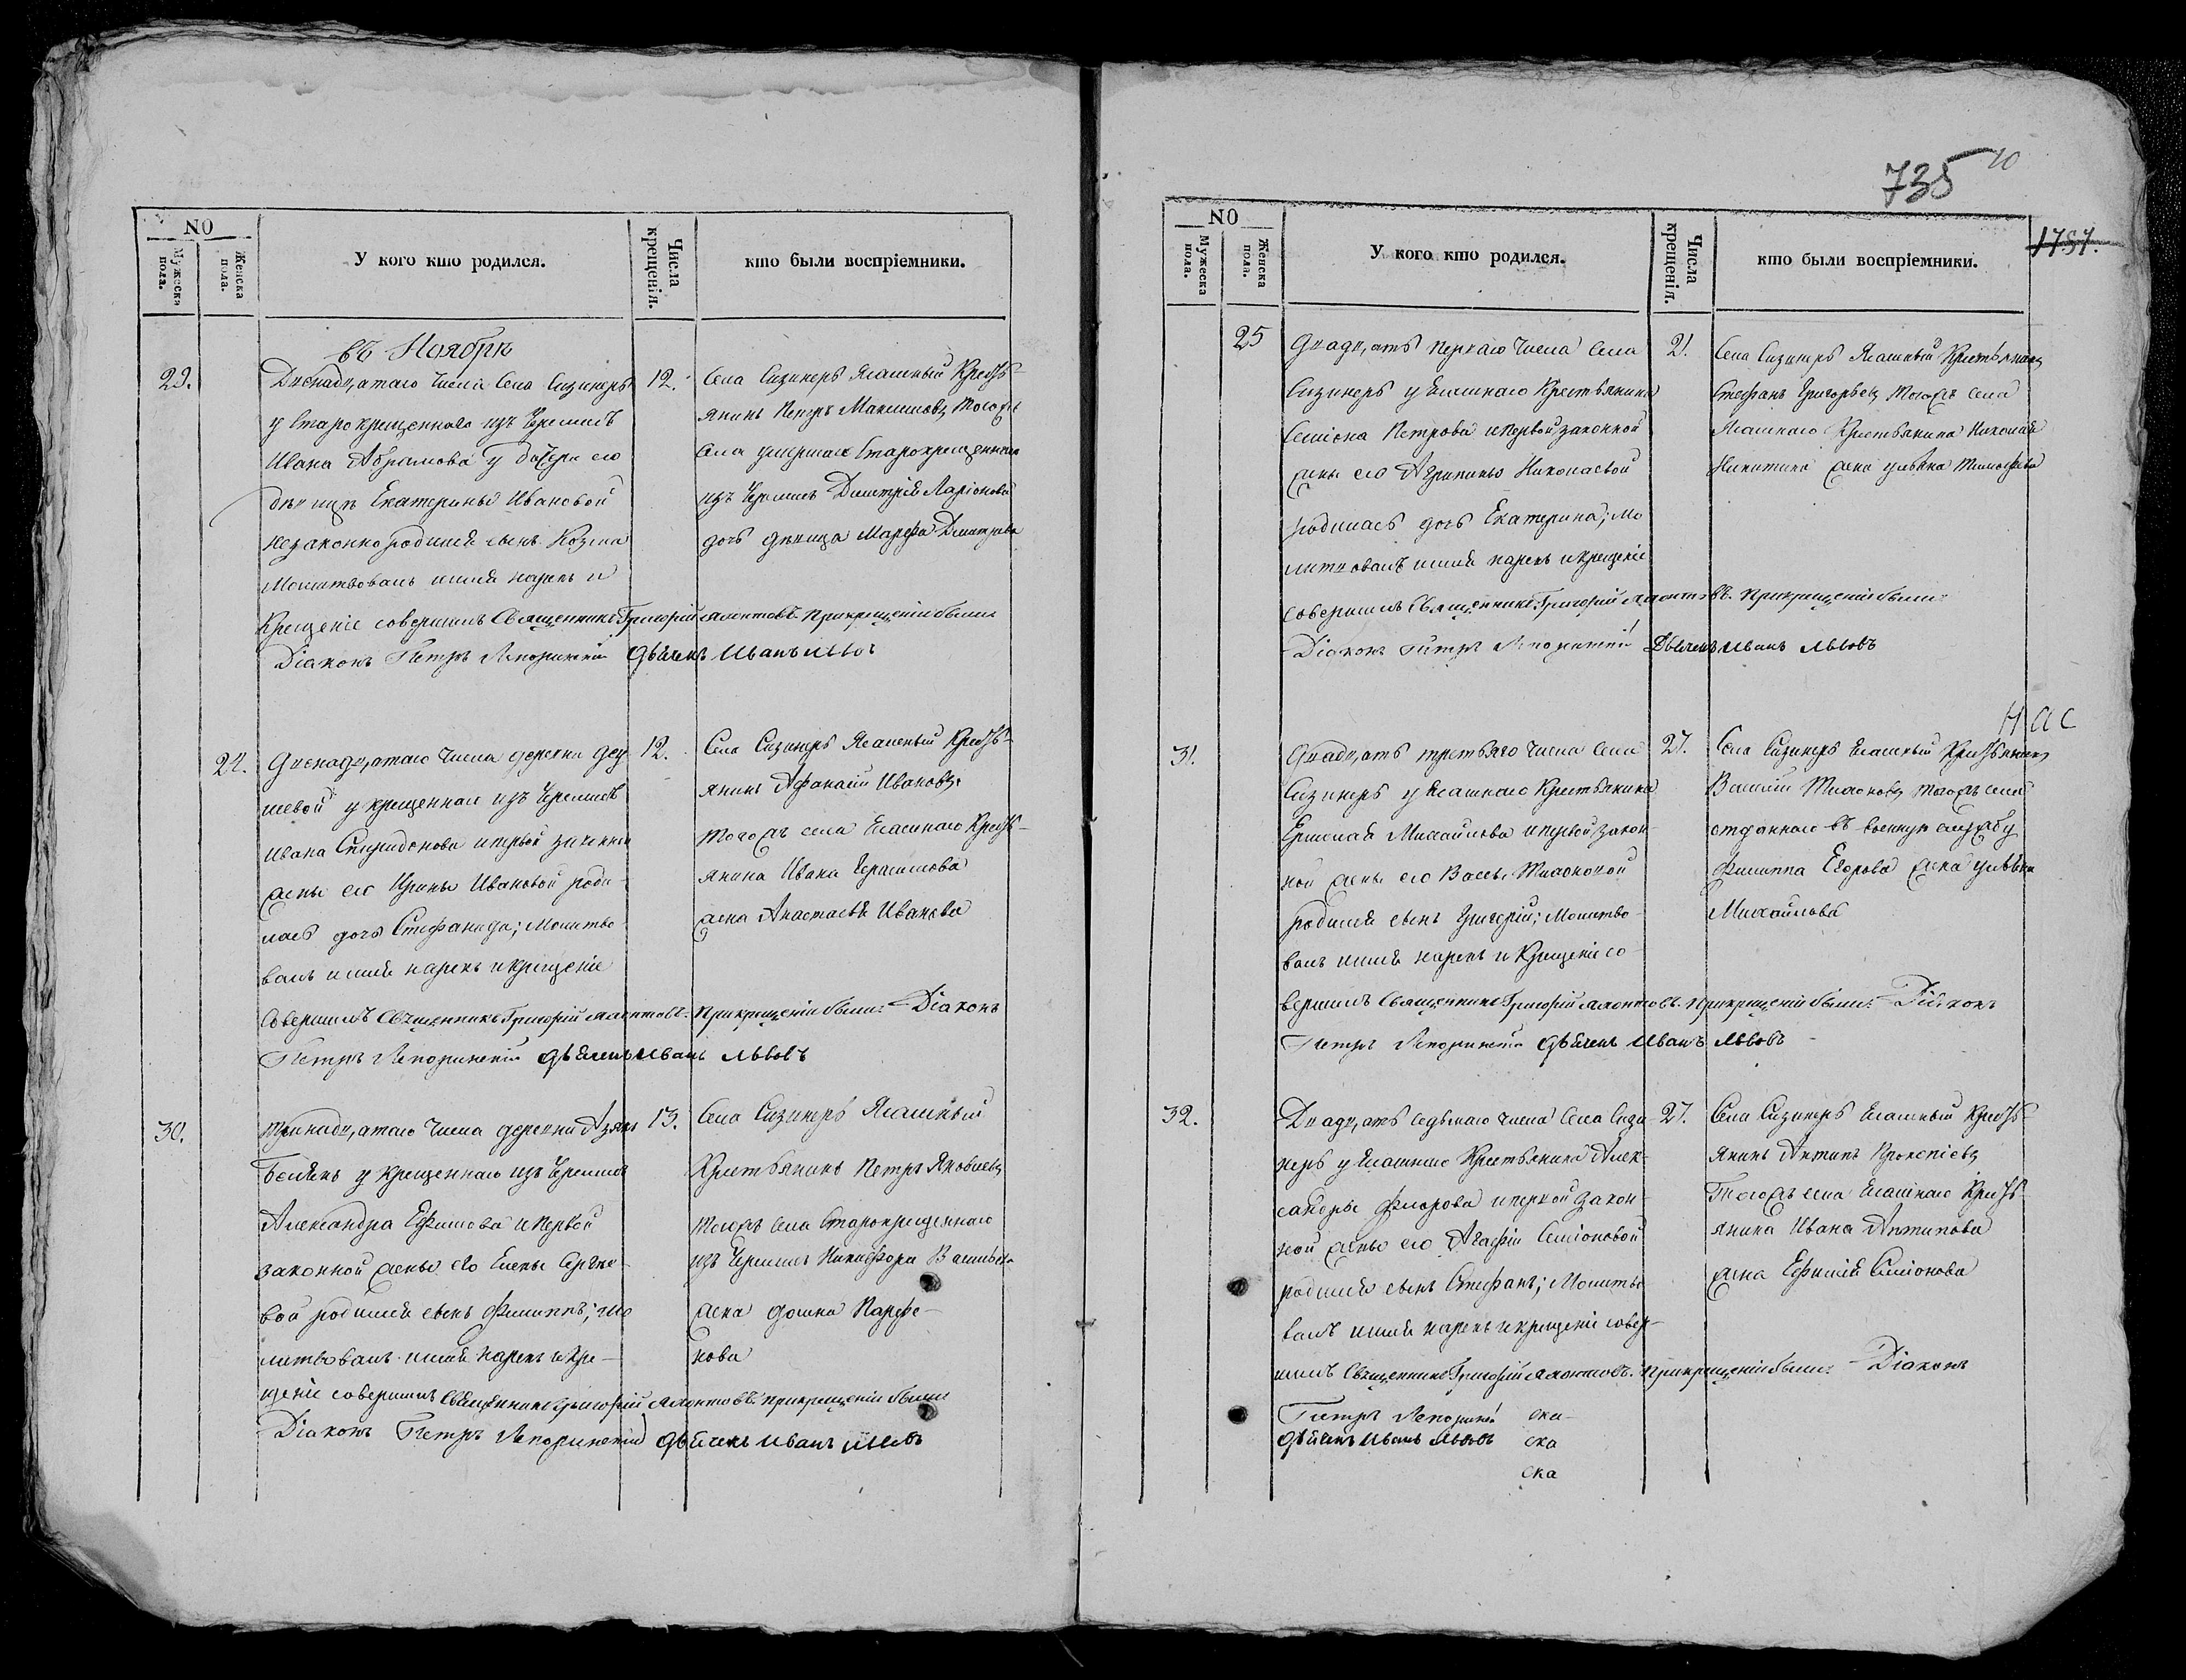 NO
Мужеска пола.
Женска пола.
У кого кто родился.
Числа крещенія.
кто были воспріемники.
въ Ноябрѣ
29.
Двенадцатаго числа Села Сизинеръ
у Старокрещеннаго изъ Черемисъ
Ивана Абрамова у дочери его
девицы Екатерины Ивановой
незаконно родился сынъ Козма
Молитвовалъ имя нарекъ и
Крещеніе совершилъ Священникъ Григорій при крещеніи были
Діаконъ Петръ Лепоринскій дьячекъ Иванъ Львовъ
12.
Села Сизинеръ Ясашный Кресть-
янинъ Петръ Максимовъ того жъ
Села умершаго Старокрещеннаго
изъ Черемисъ Димитрія Ларіонова
дочь девица Марфа Дмитриева
24.
Двенадцатаго числа деревни
у крещеннаго изъ Черемисъ
Ивана Спиридонова и первой законной
жены его Ирины Ивановой роди-
лась дочь Стефанида; Молитво
валъ имя нарекъ и крещеніе
Совершилъ Священникъ Григорій при крещеніи были Діаконъ
Петръ Лепоринскій дьячекъ Иванъ Львовъ
12.
Села Сизинеръ Ясашный Кресть-
янинъ Афанасій Ивановъ
того жъ села Ясашнаго Кресть-
янина Ивана Герасимова
жена Анастасія Иванова
30.
Тринадцатаго числа деревни Азякъ
у крещеннаго изъ Черемисъ
Александра Ефимова и первой
законной жены его Елены Сергее-
вой родился сынъ Филиппъ; мо
литвовалъ имя нарекъ и кре-
щеніе совершилъ Священникъ Григорій при крещеніи были
Діаконъ Петръ Лепоринскій дьячекъ Иванъ Львовъ
13.
Села Сизинеръ Ясашный
Крестьянинъ Петръ Яковлевъ
того жъ села Старокрещеннаго
изъ Черемисъ Никифора Васильева
жена Домна Парфе-
нова
735
10
NO
Мужеска пола.
Женска пола.
У кого кто родился.
Числа крещенія.
кто были воспріемники.
1787.
25
Двадцать перваго числа Села
Сизинеръ у Ясашнаго Крестьянина
Семіона Петрова и первой законной
жены его Агрипины Николаевой
родилась дочь Екатерина; мо
литвовалъ имя нарекъ и крещеніе
совершилъ Священникъ Григорій при крещеніи были
Діаконъ Петръ Лепоринскій Дьячекъ Иванъ Львовъ
21.
Села Сизинеръ Ясашный Крестьянинъ
Стефанъ Григорьевъ того жъ села
Ясашнаго Крестьянина Николая
Никитина жена Ульяна Тимофеева
нас
31.
Двадцать третьяго числа Села
Сизинеръ у Ясашнаго Крестьянина
Ермолая Михайлова и первой закон-
ной жены его Вассы
родился сынъ Григорій; Молитво
валъ имя нарекъ и Крещеніе со-
вершилъ Священникъ Григорій при крещеніи были Діаконъ
Петръ Лепоринскій дьячекъ Иванъ Львовъ
27.
Села Сизинеръ Ясашный Крестьянинъ
Василій того жъ села
отданнаго въ военную службу
Филиппа Егорова жена Ульяна
Михайлова
32.
Двадцать седьмаго числа Села Сизи
неръ у Ясашнаго Крестьянина Алек-
сандры Флорова и первой закон-
ной жены его Агафіи Семіоновой
родился сынъ Стефанъ; Молитво
валъ имя нарекъ и крещеніе совер-
шилъ Священникъ Григорій при крещеніи были Діаконъ
Петръ Лепоринскій
дьячекъ Иванъ Львовъ
ска
ска
ска
27.
Села Сизинеръ Ясашный Кресть-
янинъ Антипъ Прокопіевъ
Того жъ села Ясашнаго Кресть-
янина Ивана Антипова
жена Ефимія Семіонова